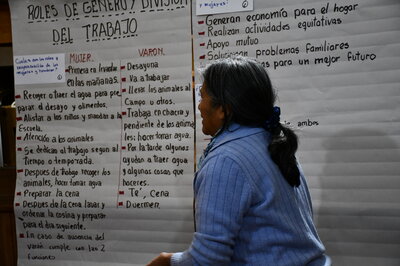 ROLES DE GÉNERO Y DIVISIÓN
DEL TRABAJO
MUJER.
Primera en levantarse
en las mañanas.
Recoger el agua para pre-
parar el desayo y alimentos.
Alistar a los niños y mandar a
Escuela.
Atención a los animales
Se dedican al trabajo según
Tiempo o temporada.
Después de Trabajo recoger los
animales, hacer tomar agua
Preparar la cena
Después de la cena lavar y
ordenar la cocina y preparar
para el día siguiente.
En caso de ausencia del
varón cumple con las 2
funciones
VARON.
Desayuna
Va a trabajar
Llevar los animales al
Campo u otros.
Trabaja en chacra y
pendiente de los animales
hacer tomar agua.
Por la tarde algunos
ayudan a traer agua
y algunas cosas que
haceres.
Cena
Duermen
Generan economía para el hogar
Realizan actividades equitativas
Apoyo mutuo
Solucionan problemas Familiares
para un mejor futuro
ambos